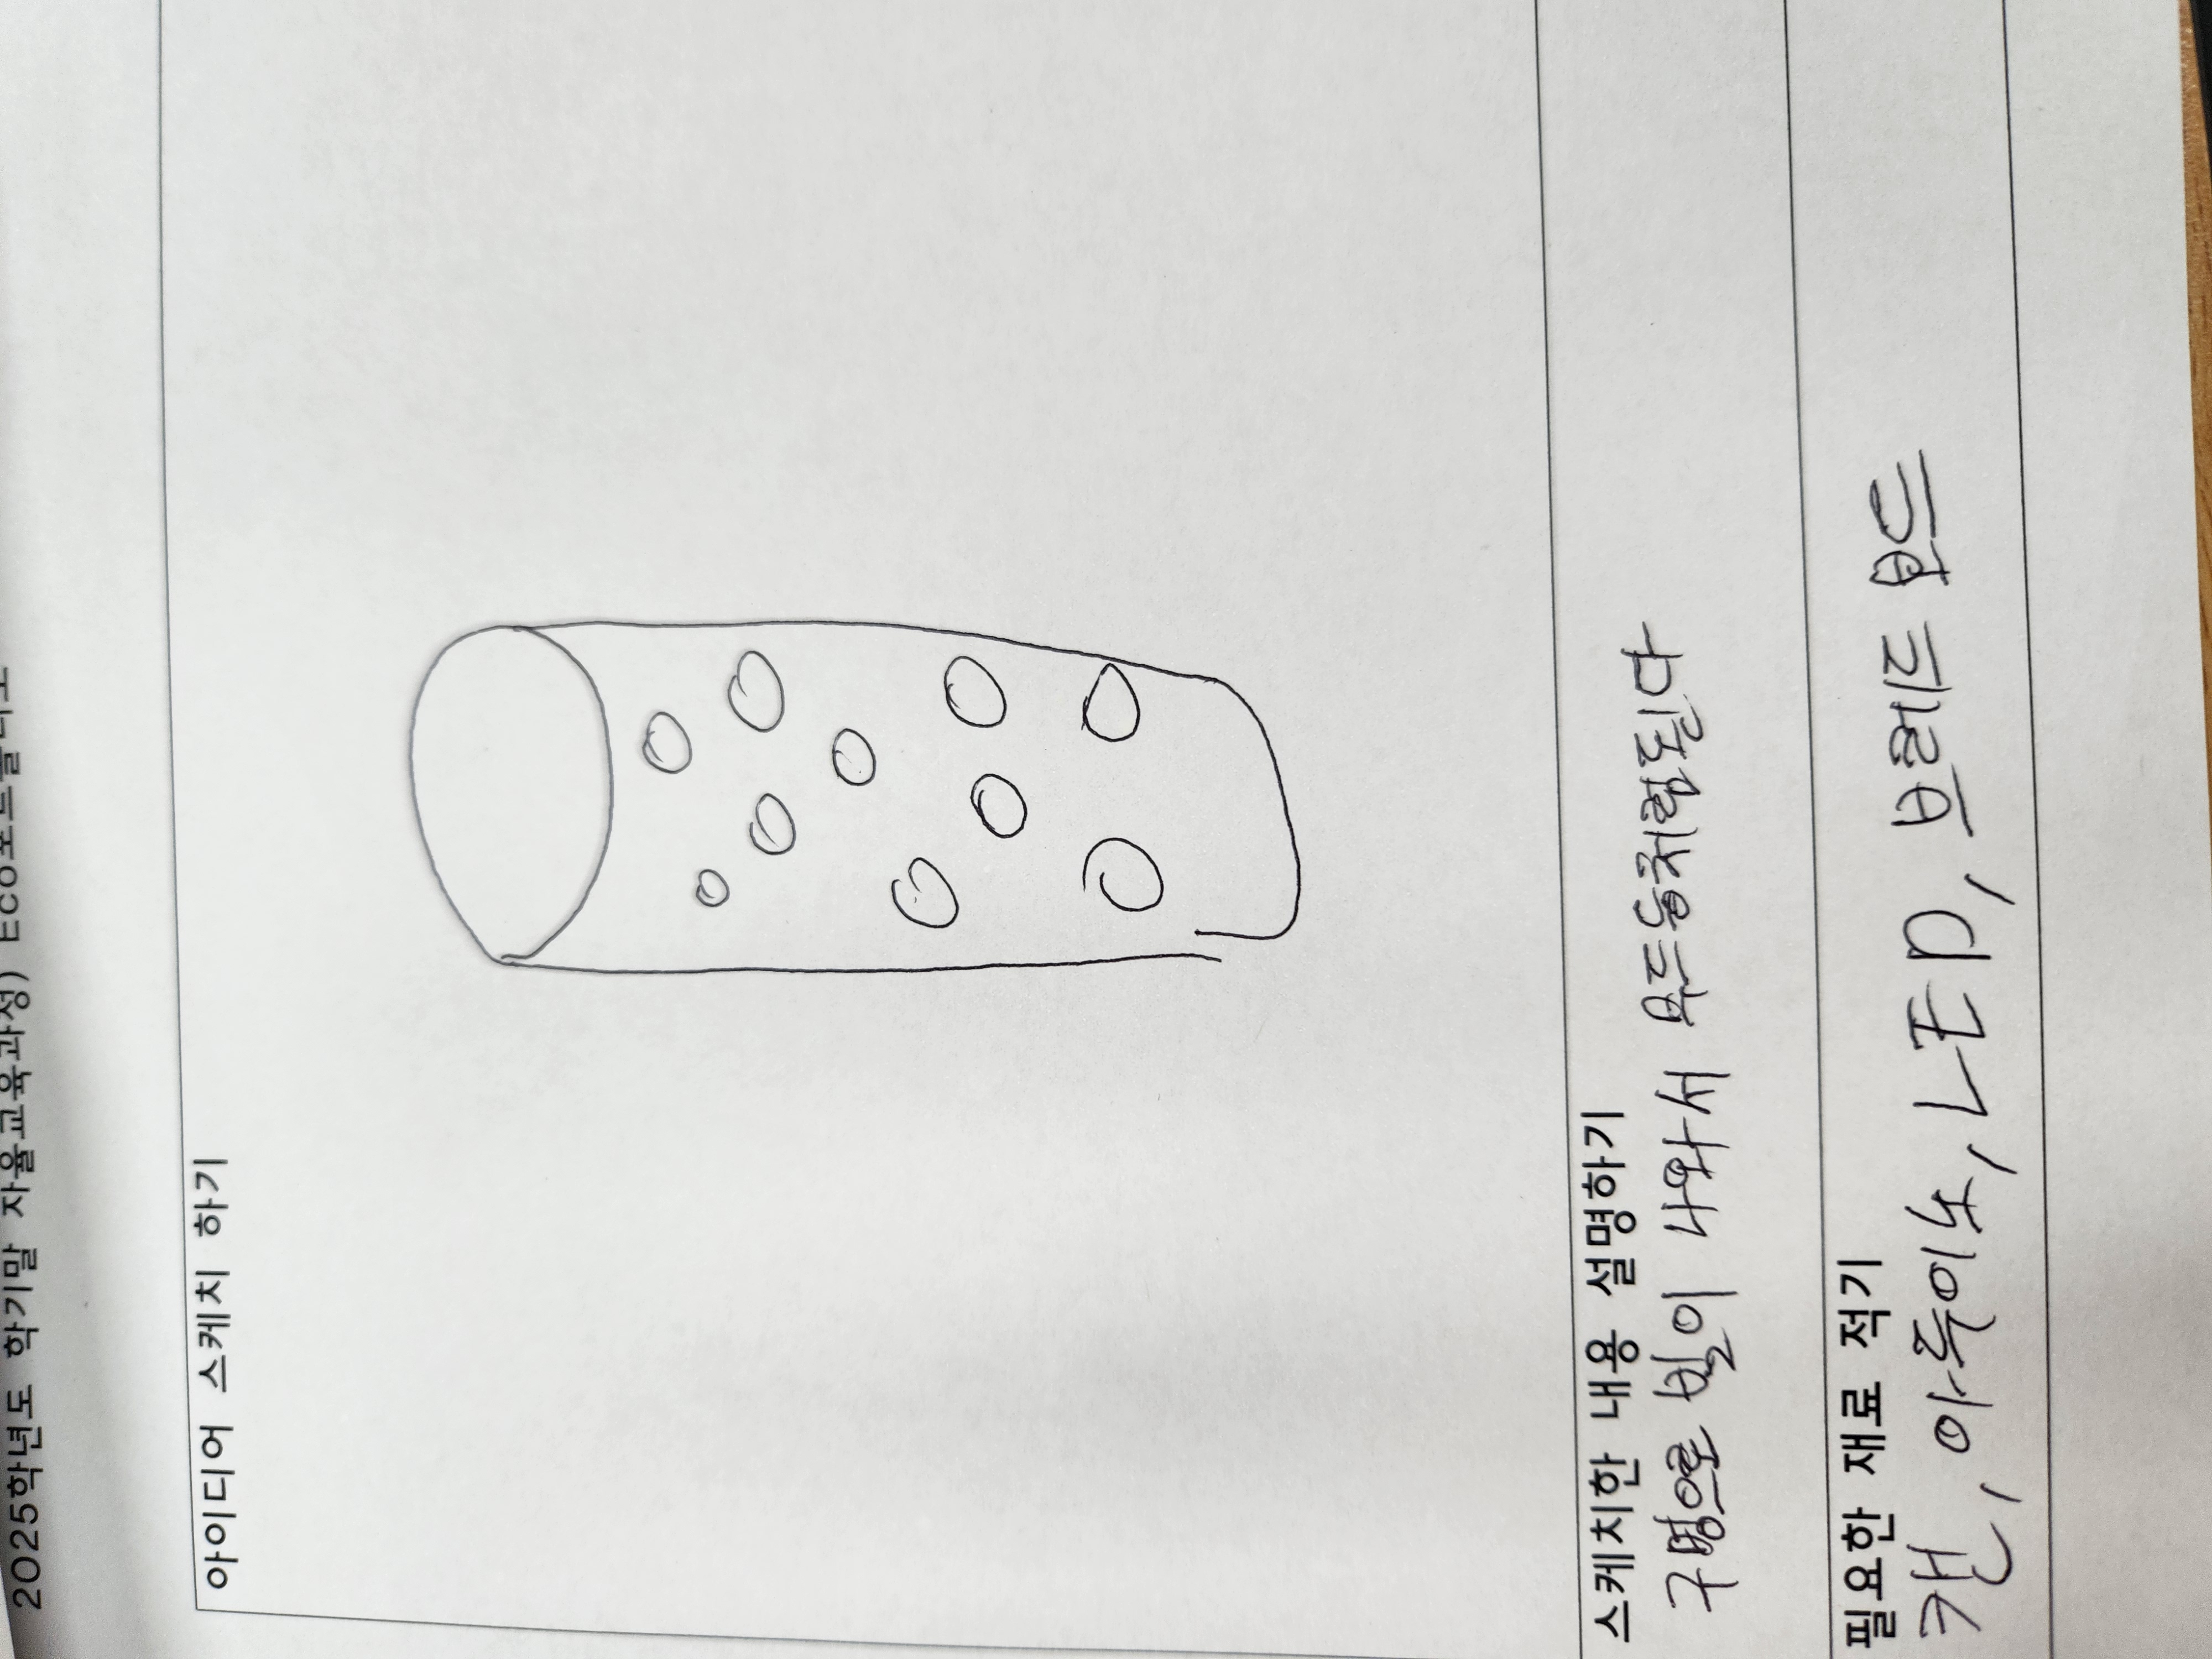 2025학년도 학기말 자율교육과정) Eco포트폴리오
아이디어 스케치 하기
스케치한 내용 설명하기
구멍으로 빛이 나와서 무드등처럼된다
필요한 재료 적기
캔, 아두이노, LED, 브레드 보드